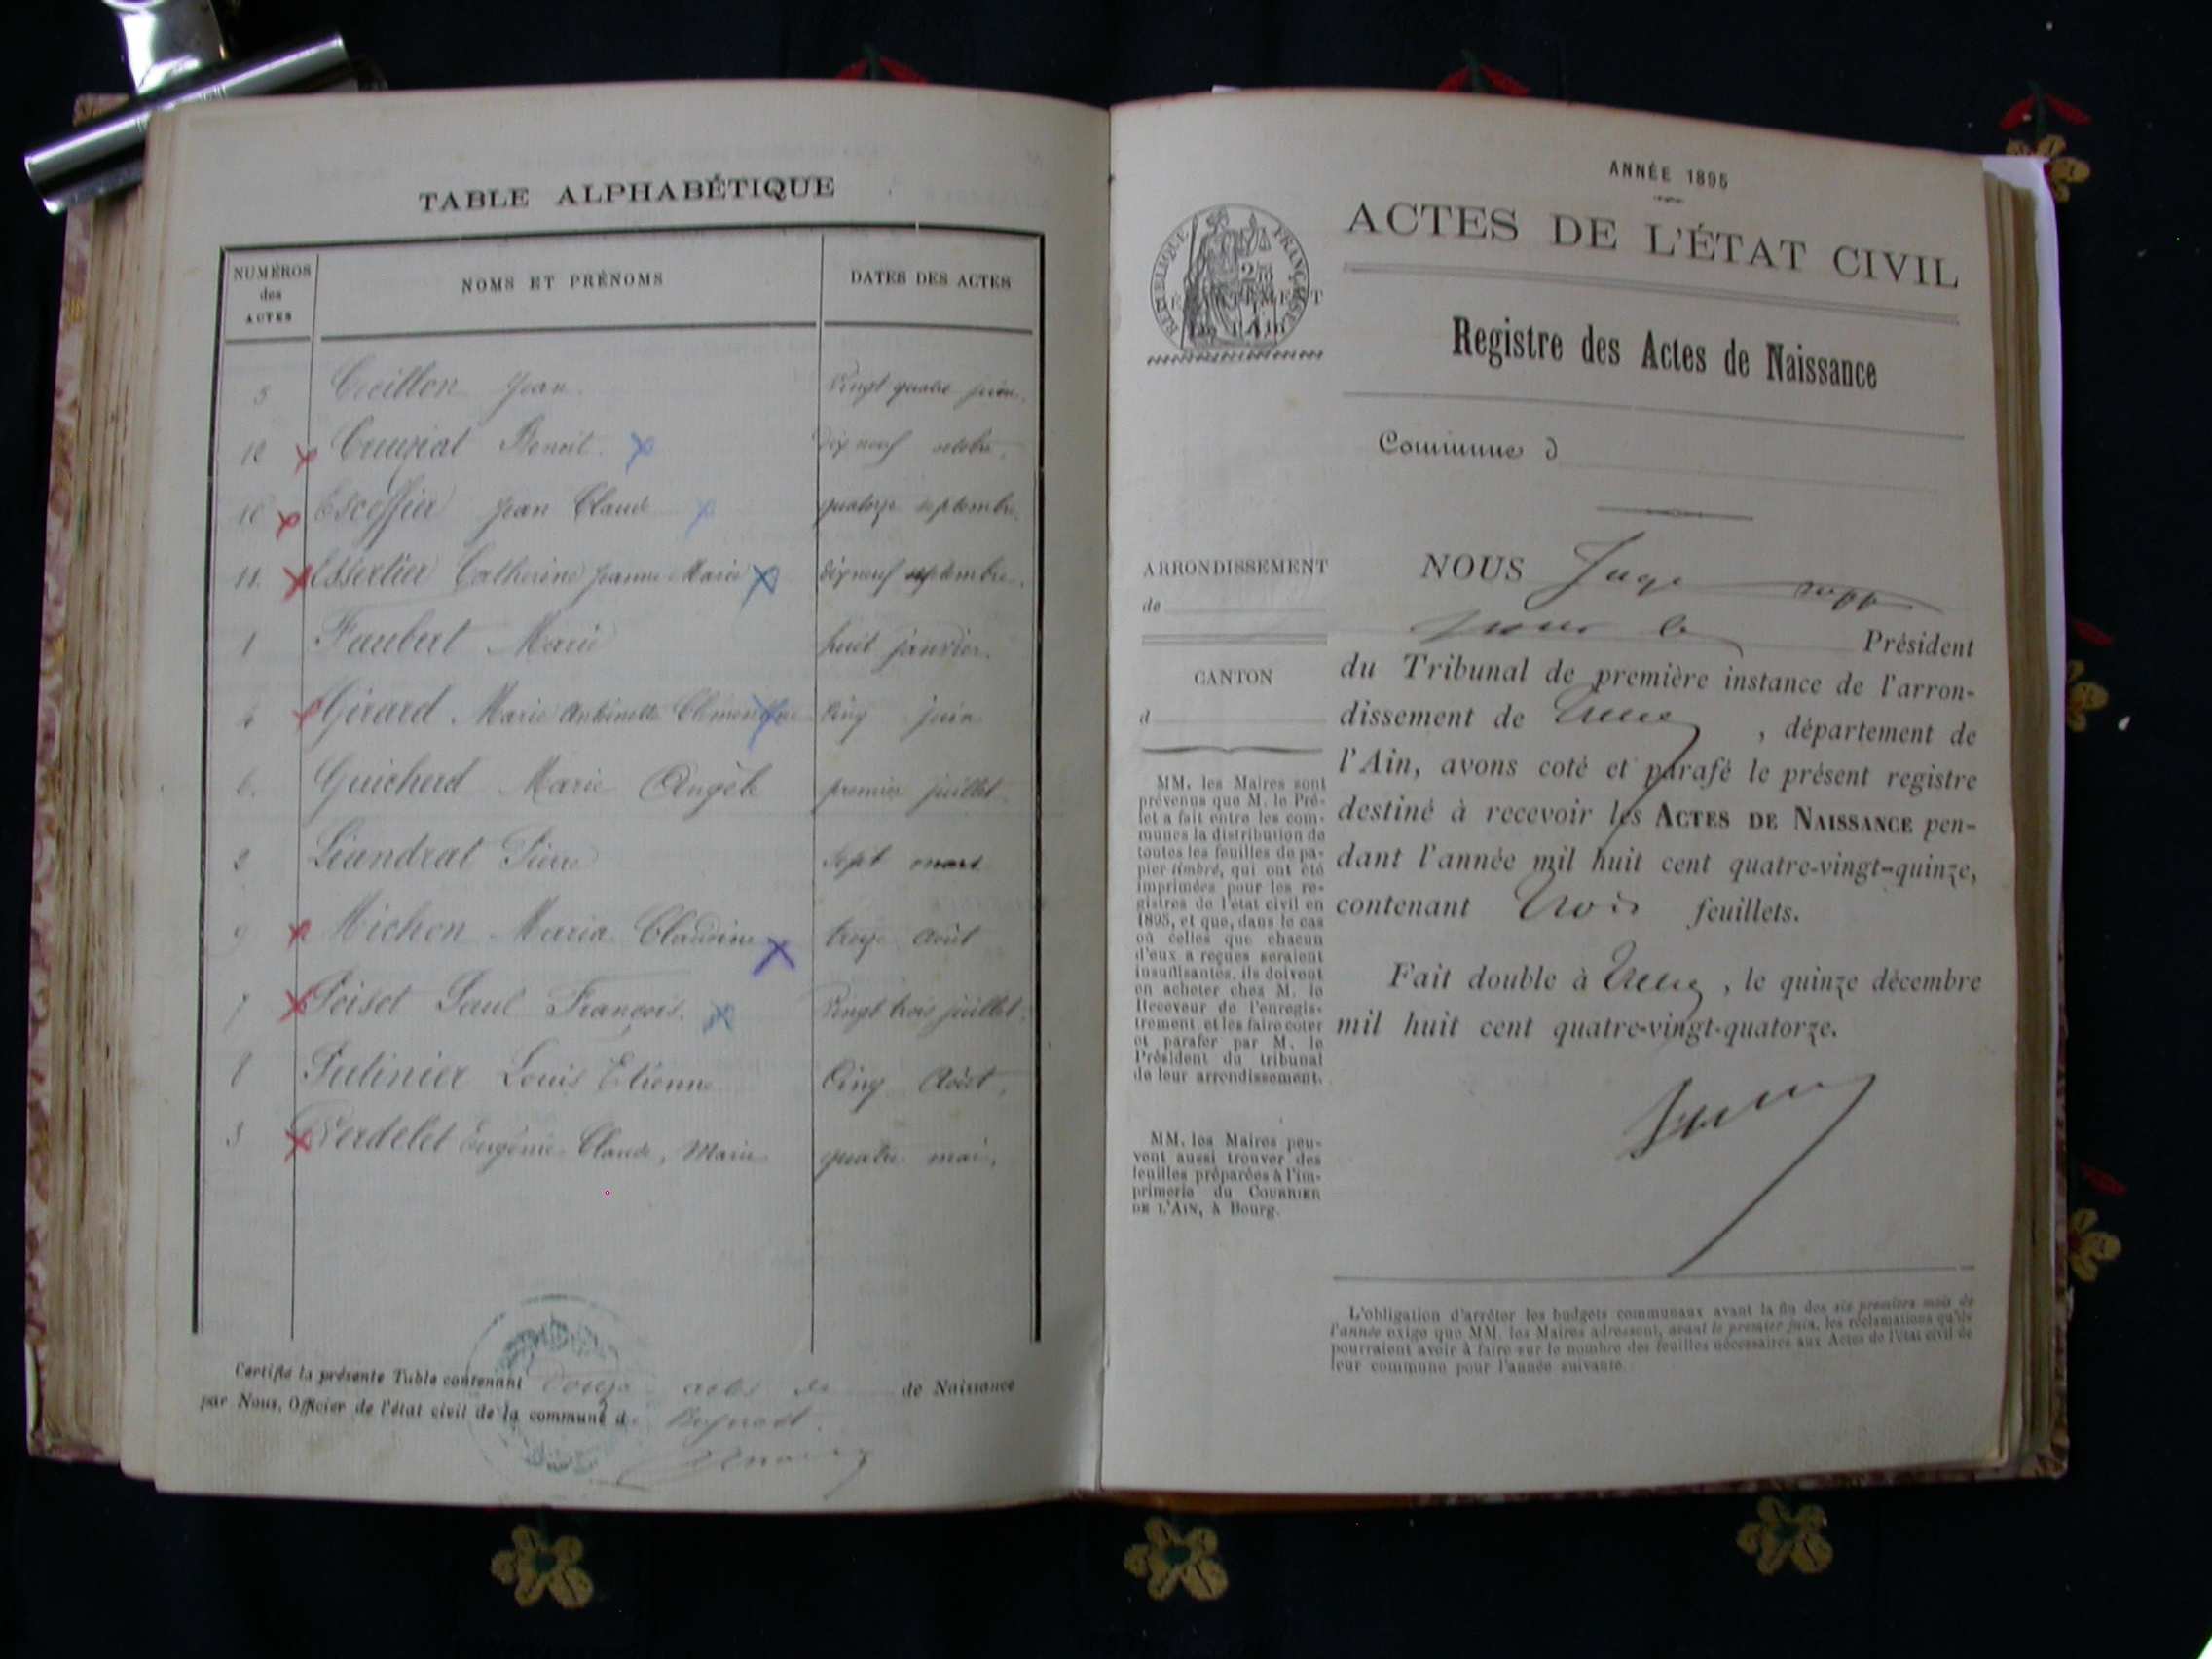 TABLE ALPHABÉTIQUE
NUMÉROS
des
ACTES
NOMS ET PRÉNOMS
DATES DES ACTES
5 Creillon Jean. Vingt quatre juin.
12 Cruziat Benoit. dix neuf octobre.
10 Escoffier Jean Claude quatorze septembre.
11. Essertier Catherine Jeanne Marie dix neuf septembre.
1 Faubert Marie huit janvier.
4 Girard Marie Antoinette Clémentine Cinq juin
6. Guicherd Marie Angèle premier juillet
2 Léandrat Pierre Sept mars
9 Michon Maria Claudine treize Août
7 Poiset Paul François. Vingt trois juillet.
8 Putinier Louis Etienne Cinq Août.
3 Verdelet Eugénie Claude, Marie quatre mai.
Certifie la présente Table contenant douze actes de de Naissance
par Nous, Officier de l'état civil de la commune d
ANNÉE 1895
ACTES DE L'ÉTAT CIVIL
RÉPUBLIQUE FRANÇAISE
DÉPARTEMENT
De l'Ain
Registre des Actes de Naissance
Commune d
ARRONDISSEMENT
de
CANTON
d
MM. les Maires sont
prévenus que M. le Pré-
fet a fait entre les com-
munes la distribution de
toutes les feuilles de pa-
pier timbré, qui ont été
imprimées pour les re-
gistres de l'état civil en
1895, et que, dans le cas
où celles que chacun
d'eux a reçues seraient
insuffisantes, ils doivent
en acheter chez M. le
Receveur de l'enregis-
trement et les faire coter
et parafer par M. le
Président du tribunal
de leur arrondissement.
MM. les Maires peu-
vent aussi trouver des
feuilles préparées à l'im-
primerie du COURRIER
DE L'AIN, à Bourg.
NOUS Juge supp
pour le Président
du Tribunal de première instance de l'arron-
dissement de , département de
l'Ain, avons coté et parafé le présent registre
destiné à recevoir les ACTES DE NAISSANCE pen-
dant l'année mil huit cent quatre-vingt-quinze,
contenant trois feuillets.
Fait double à , le quinze décembre
mil huit cent quatre-vingt-quatorze.
L'obligation d'arrêter les budgets communaux avant la fin des six premiers mois de
l'année exige que MM. les Maires adressent, avant le premier juin, les réclamations qu'ils
pourraient avoir à faire sur le nombre des feuilles nécessaires aux Actes de l'état civil de
leur commune pour l'année suivante.